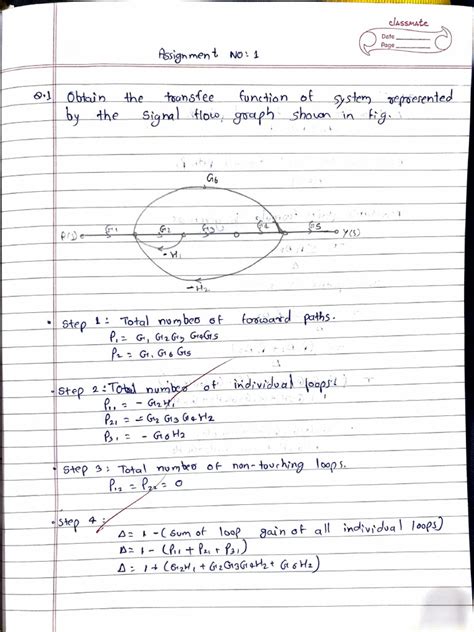 classmate
Date
Page
Assignment No: 1
Q.1 Obtain the transfee function of system represented
by the signal flow graph shown in fig.
G6
R(s) G1 G2 G3 G4 G5 Y(s)
-H1
-H2
• Step 1: Total number of forward paths.
P1 = G1 G2 G3 G4 G5
P2 = G1 G6 G5
• Step 2: Total number of individual loops:
P11 = - G2H1
P21 = - G2 G3 G4 H2
P31 = - G6H2
• Step 3: Total number of non-touching loops.
P12 = P22 = 0
• Step 4:
Δ = 1 - (sum of loop gain of all individual loops)
Δ = 1 - (P11 + P21 + P31)
Δ = 1 + (G2H1 + G2G3G4H2 + G6H2)